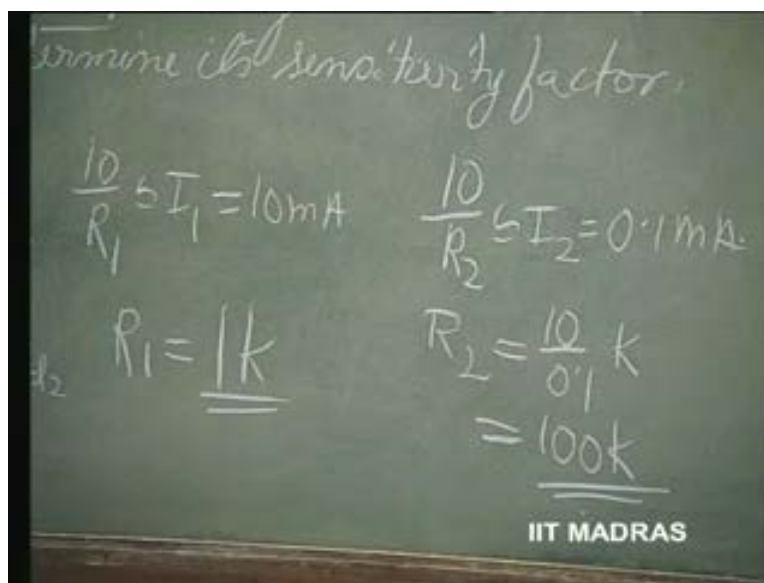 ermine its sensitivity factor.
10/R₁ ≃ I₁ = 10mA
10/R₂ ≃ I₂ = 0.1mA.
R₁ = 1k
R₂ = 10/0.1 k
= 100k
IIT MADRAS